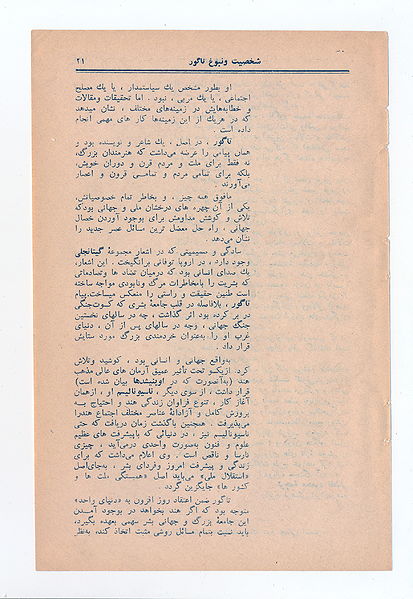 شخصیت ونبوغ تاگور
۲۱
او بطور مشخص یك سیاستمدار ، یا یك مصلح
اجتماعی ، یا یك مربی ، نبود . اما تحقیقات ومقالات
و خطابه‌هایش در زمینه‌های مختلف ، نشان میدهد
که در هریك از این زمینه‌ها کار های مهمی انجام
داده است .
تاگور ، در اصل ، یك شاعر و نویسنده بود و
همان پیامی را عرضه می‌داشت که هنرمندان بزرگ،
نه فقط برای ملت و مردم قرن و دوران خویش،
بلکه برای تمامی مردم و تمامــی قرون و اعصار
می‌آورند .
مافوق همه چیز ، و بخاطر تمام خصوصیاتش،
یکی از آن چهره های درخشان ملی و جهانی بودکه
تلاش و کوشش مداومش برای بوجود آوردن خصال
جهانی ، راه حل معضل ترین مسائل عصر جدید را
نشان می‌دهد .
سادگی و صمیمیتی که در اشعار مجموعهٔ گیتانجلی
وجود دارد ، در اروپا توفانی برانگیخت . این اشعار،
یك صدای انسانی بود که درمیان تضاد ها وتصادماتی
که بشریت را بامخاطرات مرگ ونابودی مواجه ساخته
است طنین حقیقت و راستی را منعکس میساخت.پیام
تاگور ،بلافاصله در قلب جامعهٔ بشری که کسوت‌جنگی
در بر کرده بود اثر گذاشت ، چه در سالهای نخستین
جنگ جهانی ، وچه در سالهای پس از آن ، دنیای
غرب او را به‌عنوان خردمندی بزرگ مورد ستایش
قرار داد .
به‌واقع جهانی و انسانی بود ، کوشید وتلاش
کرد. ازیکسو تحت تأثیر عمیق آرمان های عالی مذهب
هند (بدانصورت که در اوپنیشدها بیان شده است)
قرار داشت ، از سوی دیگر ، ناسیونالیسم او ، ازهمان
آغاز کار ، تنوع فراوان زندگی هند و احتیاج بــه
پرورش کامل و آزادانهٔ عناصر مختلف اجتماع هندرا
می‌پذیرفت . همچنین باگذشت زمان دریافت که حتی
ناسیونالیسم نیز ، در دنیائی که باپیشرفت های عظیم
علوم و فنون به‌صورت واحدی درمی‌آید ، چیزی
نارسا و ناقص است . وی اعلام می‌داشت که برای
زندگی و پیشرفت امروز وفردای بشر ، به‌جای‌اصل
«استقلال ملی» می‌باید اصل «همبستگی ملت ها و
کشور ها» جایگزین گردد .
تاگور ضمن اعتقاد روز افزون به «دنیای واحد»
متوجه بود که اگر هند بخواهد در بوجود آمــدن
این جامعهٔ بزرگ و جهانی بشر سهمی بعهده بگیرد،
باید نسبت بتمام مسائل روشی مثبت اتخاذ کند. به‌نظر